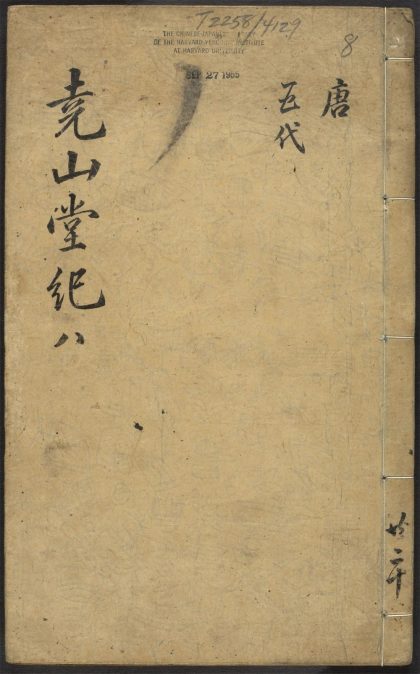 T2258/4129
THE CHINESE-JAPANESE
OF THE HARVARD-YENCHING INSTITUTE
AT HARVARD UNIVERSITY
SEP 27 1935
8
唐
五代
尭山堂紀八